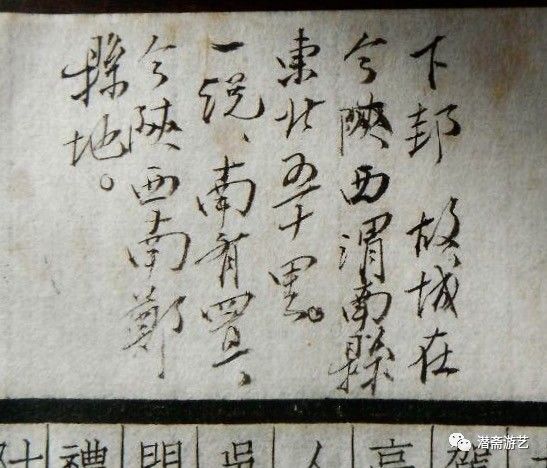 下邽 故城在
今陝西渭南縣
東北五十里。
一说、南有
今陝西南鄭
縣地。
人
門
禮
潜斋游艺